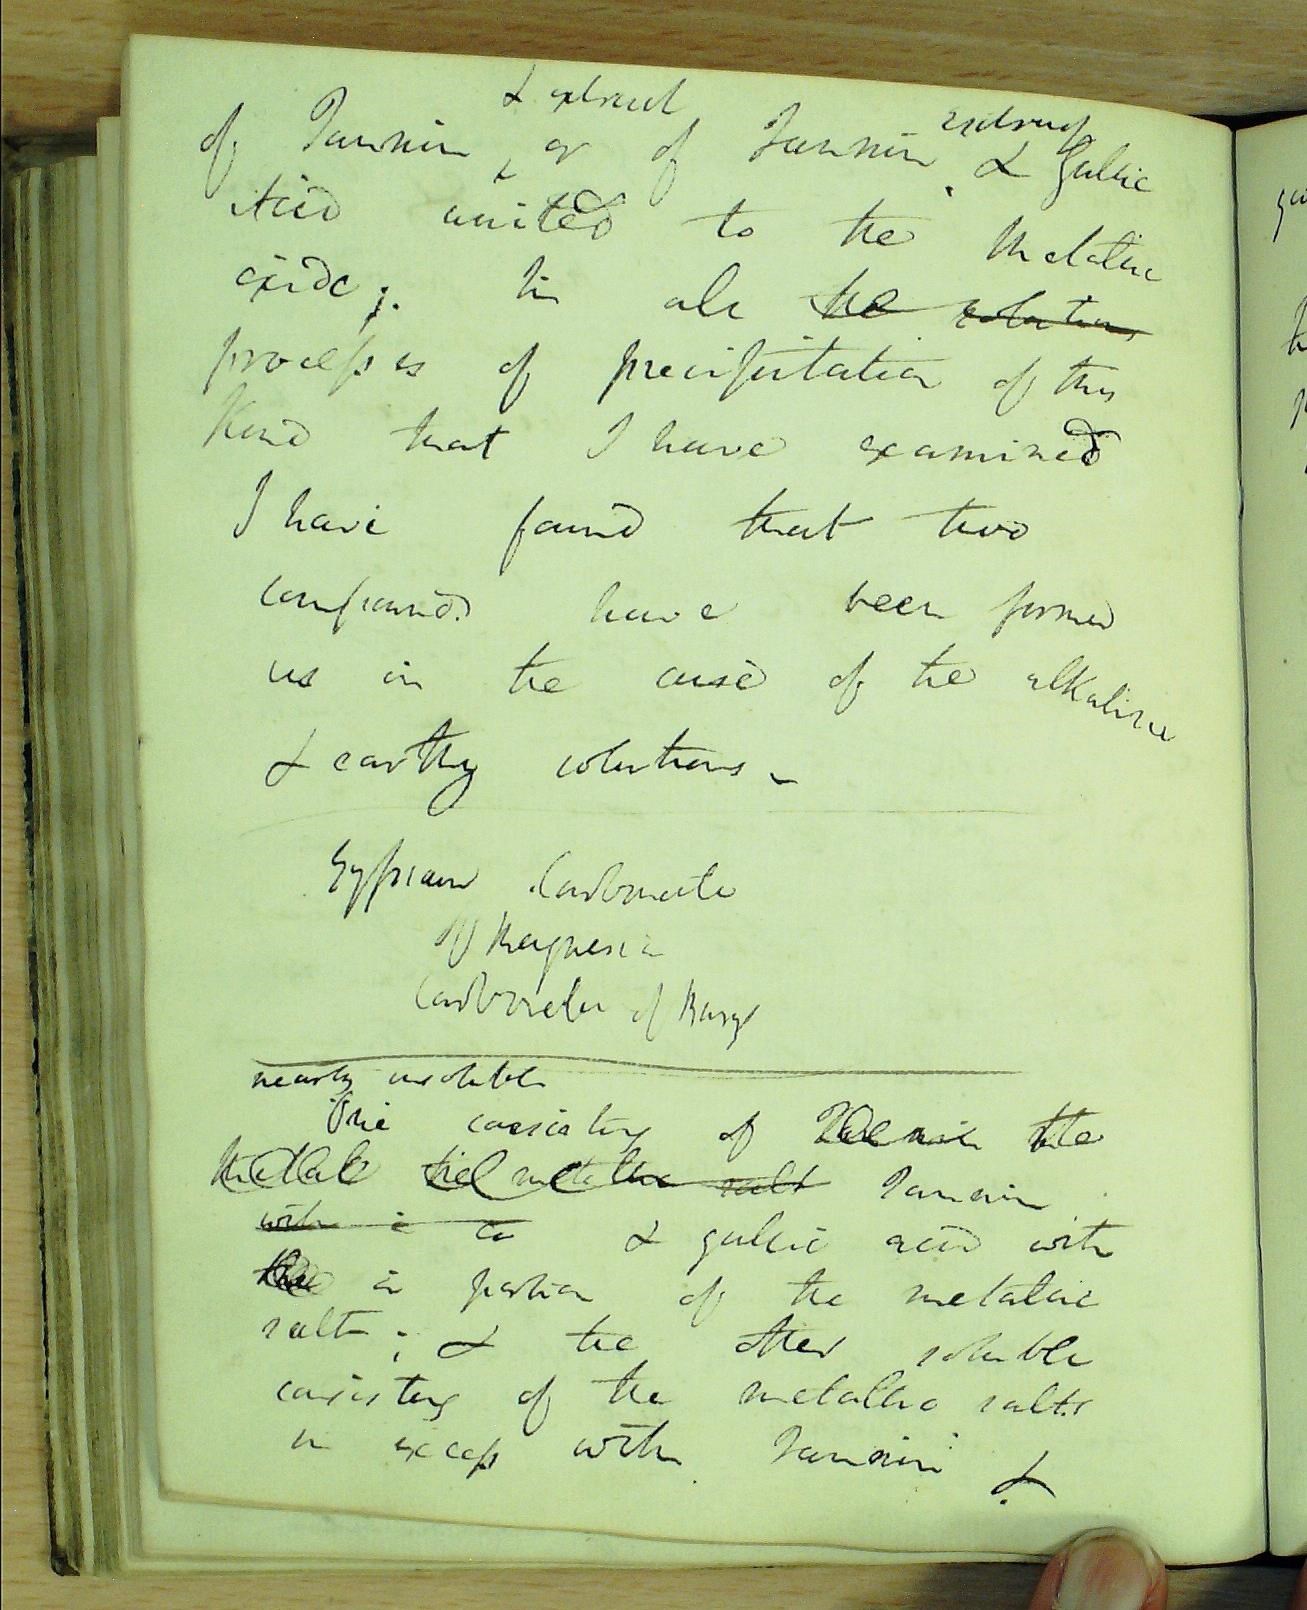 & extract
extract
of Tannin, or of Tannin & Gallic
Acid united to the Metallic
oxide;. In all the solutions
processes of precipitation of this
Kind that I have examined
I have found that two
compounds have been formed
as in the case of the alkaline
& earthy solutions –
Gypsum Carbonate
of Magnesia
Carbonate of Bary
nearly insoluble
One consisting of Tannin the
Metal the metallic salt Tannin
with a & gallic acid with
the a portion of the metallic
salt; & the other soluble
consisting of the metallic salts
in excess with Tannin &